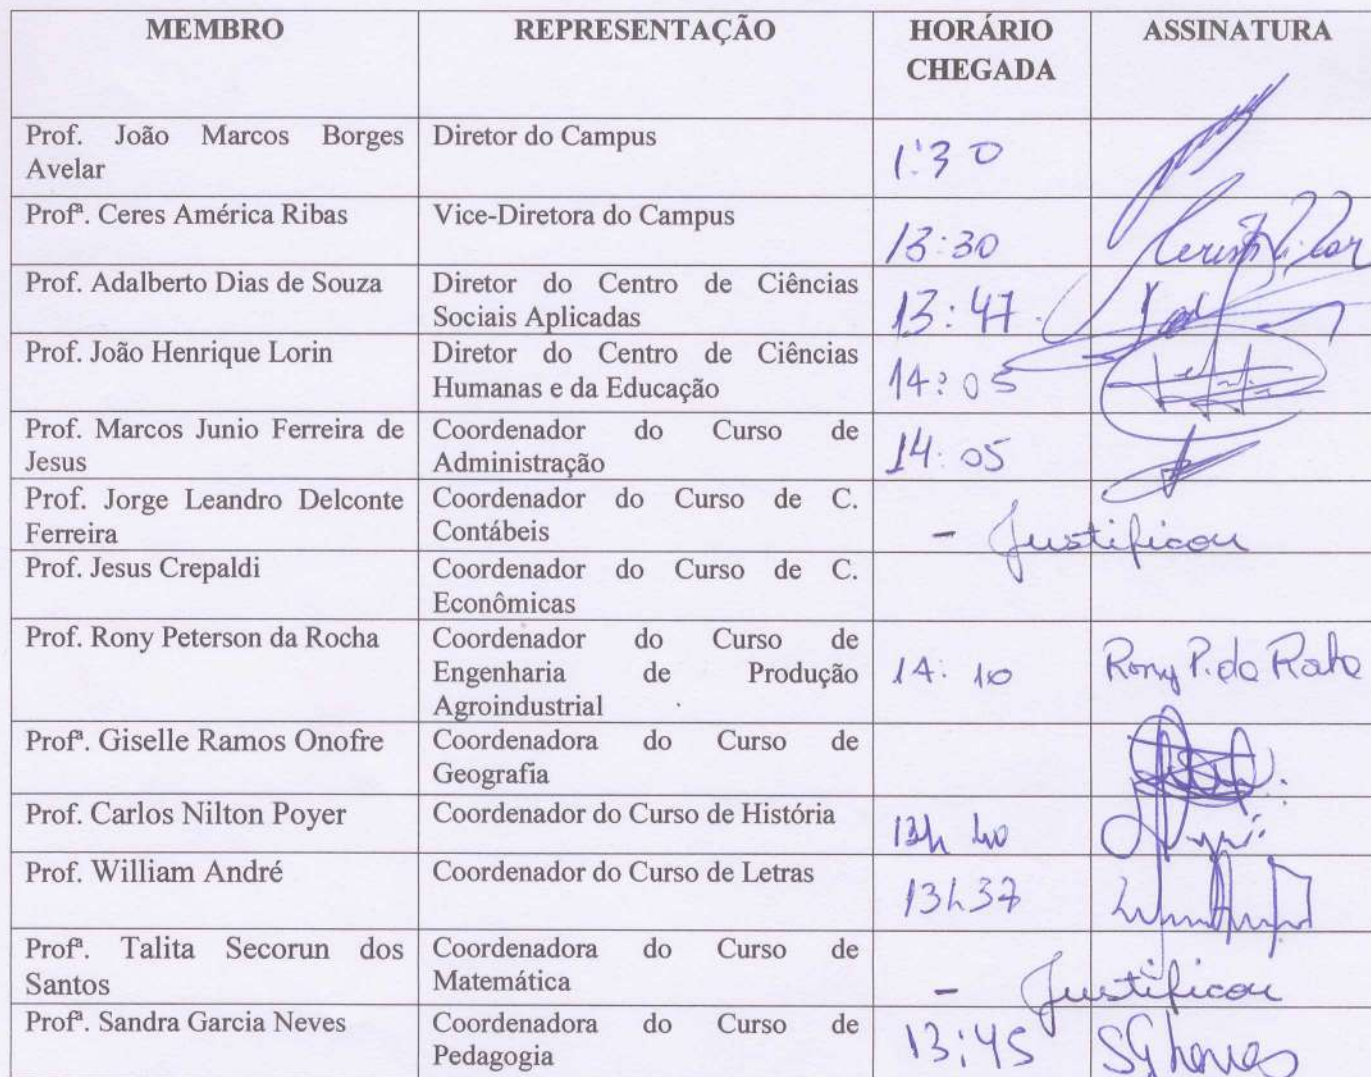 MEMBRO REPRESENTAÇÃO HORÁRIO ASSINATURA
CHEGADA
Prof. João Marcos Borges Diretor do Campus 1:30
Avelar
Profª. Ceres América Ribas Vice-Diretora do Campus 13:30
Prof. Adalberto Dias de Souza Diretor do Centro de Ciências 13:47
Sociais Aplicadas
Prof. João Henrique Lorin Diretor do Centro de Ciências 14:05
Humanas e da Educação
Prof. Marcos Junio Ferreira de Coordenador do Curso de 14:05
Jesus Administração
Prof. Jorge Leandro Delconte Coordenador do Curso de C. - Justificou
Ferreira Contábeis
Prof. Jesus Crepaldi Coordenador do Curso de C.
Econômicas
Prof. Rony Peterson da Rocha Coordenador do Curso de 14:10 Rony P. da Rocha
Engenharia de Produção
Agroindustrial
Profª. Giselle Ramos Onofre Coordenadora do Curso de
Geografia
Prof. Carlos Nilton Poyer Coordenador do Curso de História 13h40
Prof. William André Coordenador do Curso de Letras 13h37
Profª. Talita Secorun dos Coordenadora do Curso de - Justificou
Santos Matemática
Profª. Sandra Garcia Neves Coordenadora do Curso de 13:45 SGNeves
Pedagogia